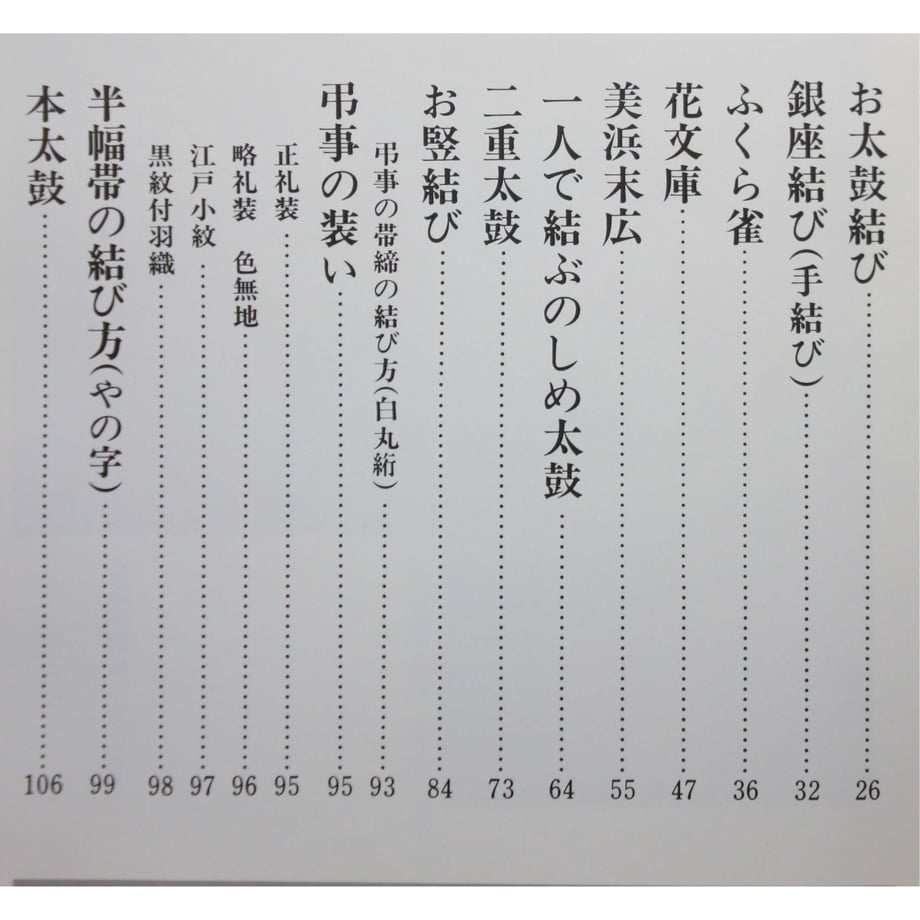 お太鼓結び……26
銀座結び(手結び)……32
ふくら雀……36
花文庫……47
美浜末広……55
一人で結ぶのしめ太鼓……64
二重太鼓……73
お竪結び……84
弔事の帯締の結び方(白丸絎)……93
弔事の装い……95
正礼装……95
略礼装　色無地……96
江戸小紋……97
黒紋付羽織……98
半幅帯の結び方(やの字)……99
本太鼓……106